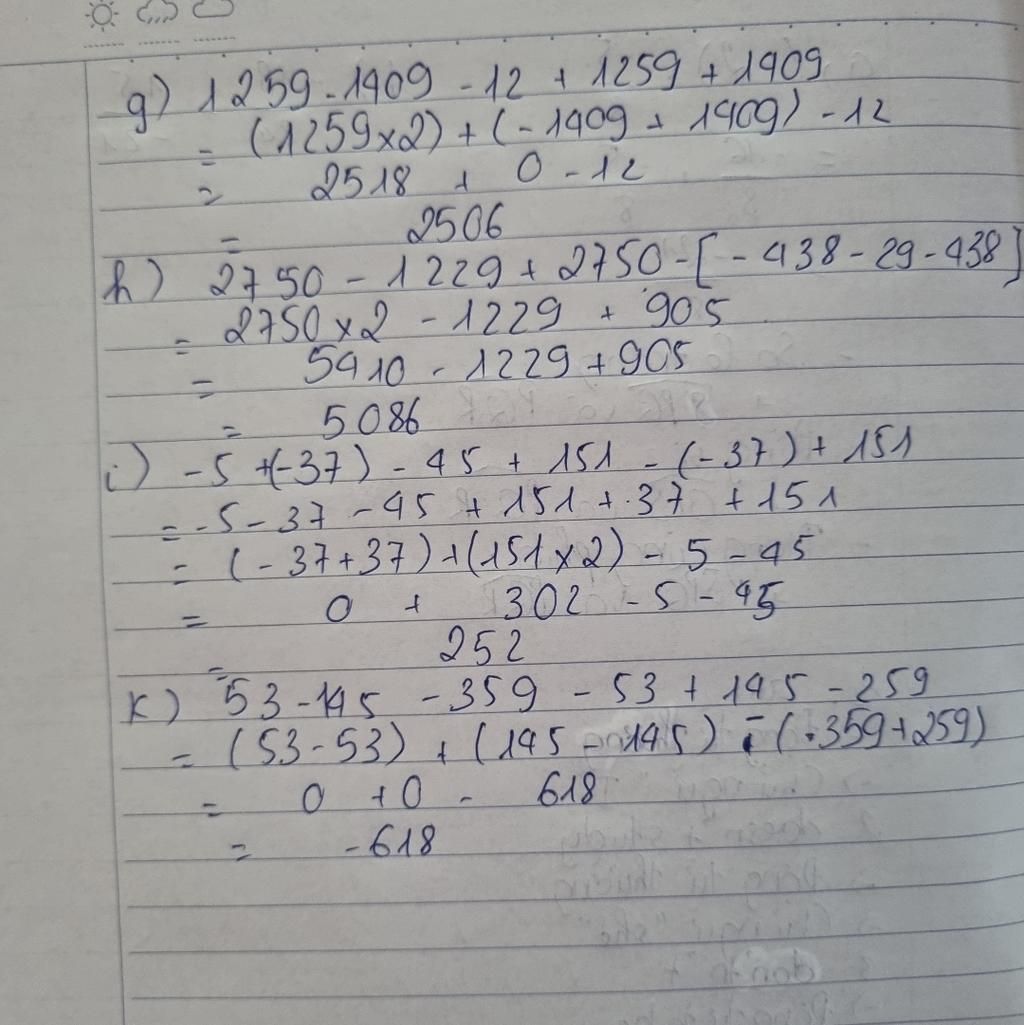 g) 1259 - 1409 - 12 + 1259 + 1409
= (1259 × 2) + (- 1409 + 1409) - 12
= 2518 + 0 - 12
= 2506
h) 2750 - 1229 + 2750 - [ - 438 - 29 - 438 ]
= 2750 × 2 - 1229 + 905
= 5410 - 1229 + 905
= 5086
i) -5 + (-37) - 45 + 151 - (-37) + 151
= -5 - 37 - 45 + 151 + 37 + 151
= (- 37 + 37) + (151 × 2) - 5 - 45
= 0 + 302 - 5 - 45
= 252
k) 53 - 145 - 359 - 53 + 145 - 259
= (53 - 53) + (145 - 145) - (359 + 259)
= 0 + 0 - 618
= - 618